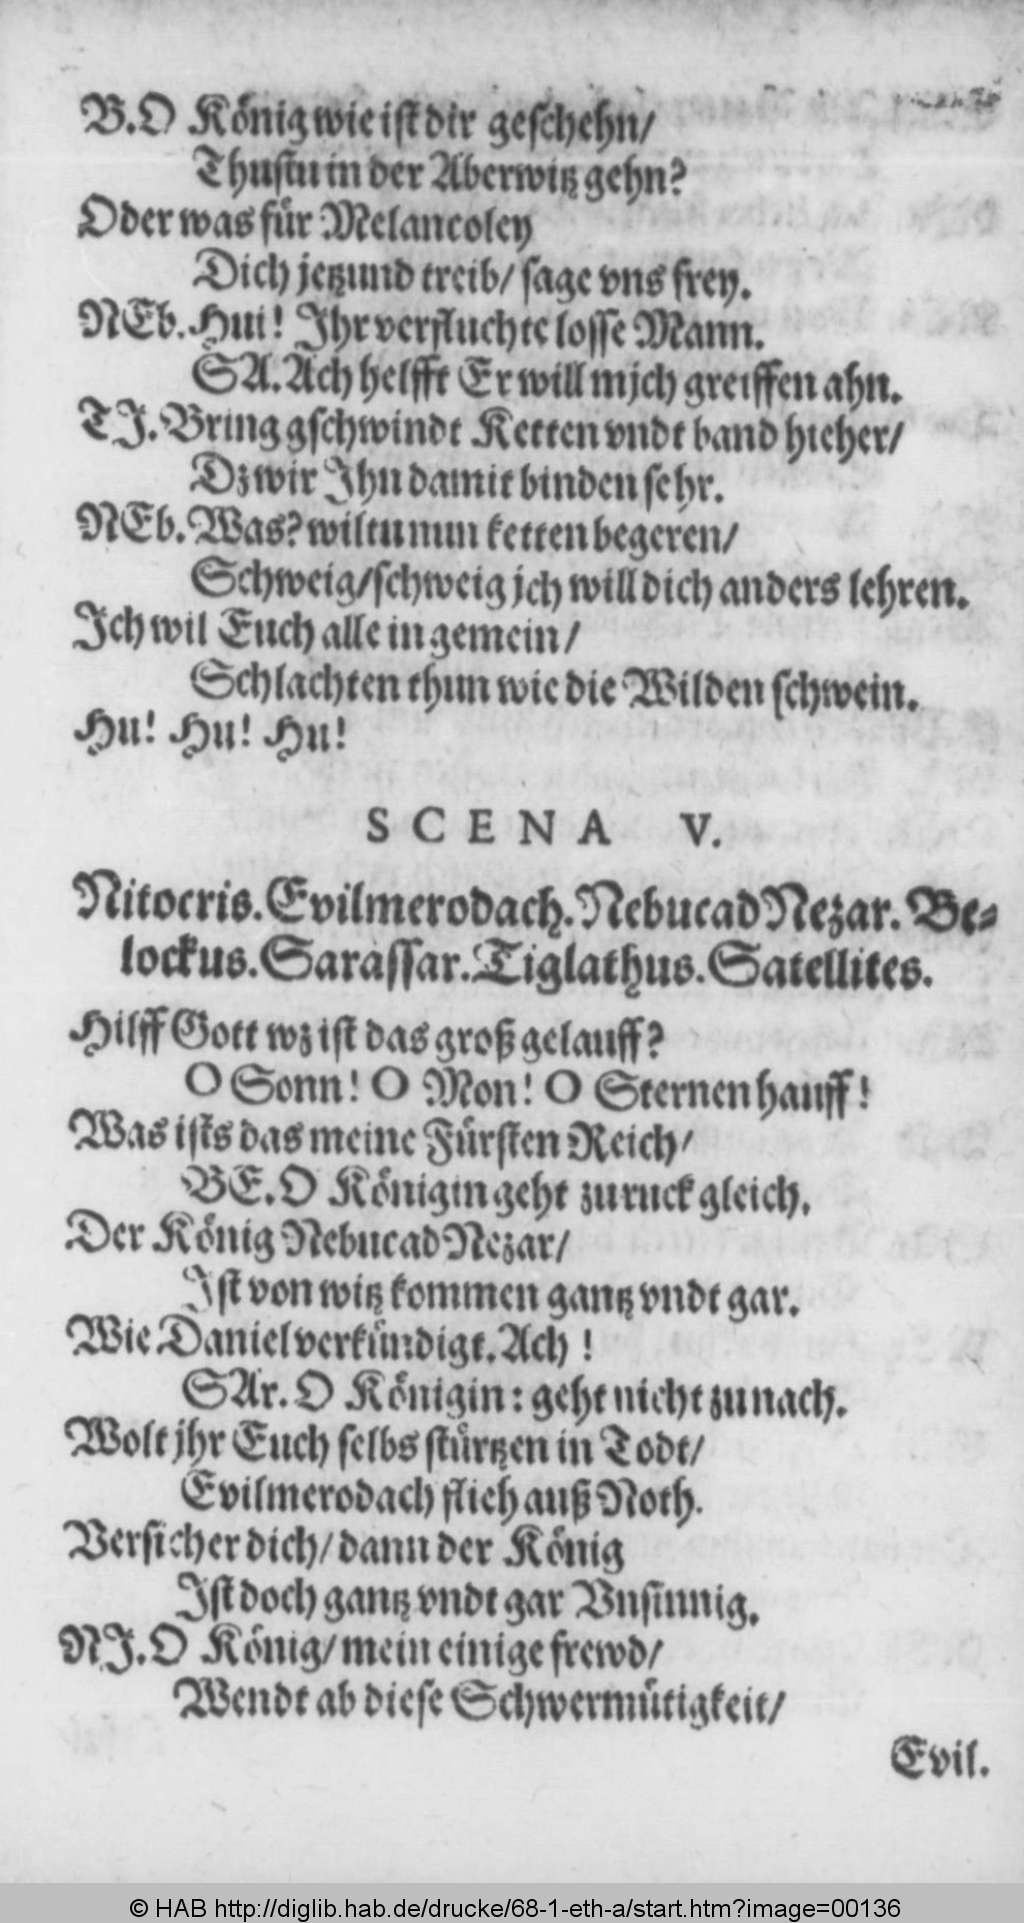 B. O König wie ist dir geschehn/
Thustu in der Aberwitz gehn?
Oder was für Melancoley
Dich jetzund treib/ sage vns frey.
NEb. Hui! Ihr verfluchte losse Mann.
SA. Ach helfft Er will mjch greiffen ahn.
TJ. Bring gschwindt Ketten vndt band hieher/
Dz wir Ihn damit binden sehr.
NEb. Was? wiltu nun ketten begeren/
Schweig/ schweig jch will dich anders lehren.
Ich wil Euch alle in gemein/
Schlachten thun wie die Wilden schwein.
Hu! Hu! Hu!
SCENA V.
Nitocris. Evilmerodach. NebucadNezar. Be-
lockus. Sarassar. Tiglathus. Satellites.
Hilff Gott wz ist das groß gelauff?
O Sonn! O Mon! O Sternen hauff!
Was ists das meine Fürsten Reich/
BE. O Königin geht zuruck gleich.
Der König NebucadNezar/
Ist von witz kommen gantz vndt gar.
Wie Daniel verkündigt. Ach!
SAr. O Königin: geht nicht zu nach.
Wolt jhr Euch selbs stürtzen in Todt/
Evilmerodach flieh auß Noth.
Versicher dich/ dann der König
Ist doch gantz vndt gar Vnsinnig.
NJ. O König/ mein einige frewd/
Wendt ab diese Schwermütigkeit/
Evil.
© HAB http://diglib.hab.de/drucke/68-1-eth-a/start.htm?image=00136